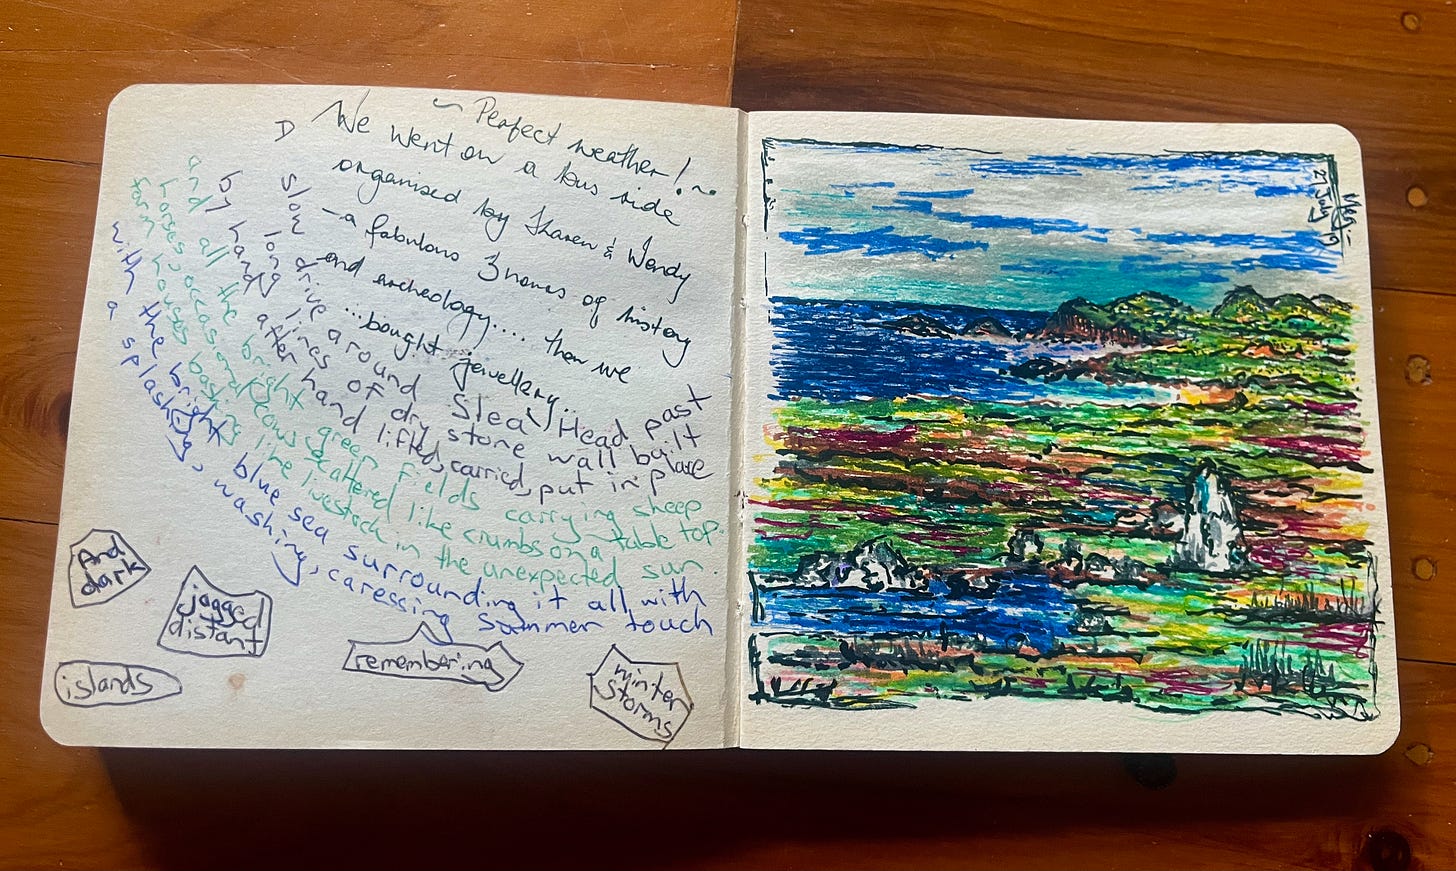 ~ Perfect weather! ~
We went on a bus ride
organised by & Wendy
- a fabulous 3 hours of history
and archeology.... then we
...bought jewellery...
Slow drive around Slea Head past
long lines of dry stone wall built
by hand after hand lifted, carried, put in place
and all the bright green fields carrying sheep
horses, occasional cows scattered like crumbs on a table top.
farm houses basking like livestock in the unexpected sun.
with the bright blue sea surrounding it all, with
a splashing, washing, caressing summer touch
And
dark
jagged
distant
islands
remembering
winter
storms
July